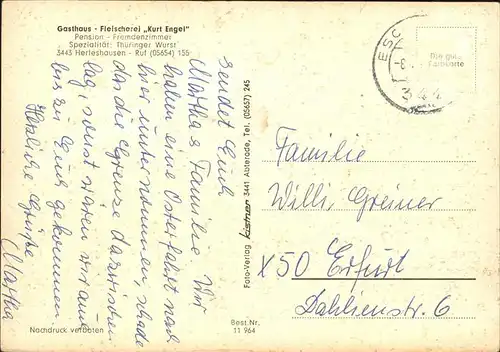 Gasthaus - Fleischerei „Kurt Engel"
Pension - Fremdenzimmer
Spezialität: Thüringer Wurst
3443 Herleshausen - Ruf (05654) 155
Herzliche Grüße
sendet Euch
Martha & Familie. Wir
haben eine Osterfahrt nach
hier unternommen, schade
das die Grenze dazwischen
lag, sonst wären wir auch
bis zu Euch gekommen
Martha
Nachdruck verboten
Foto-Verlag Listner 3441 Abterode, Tel. (05657) 245
Best.Nr.
11 964
ESC
344
Die gute
Farbkarte
Familie
Willi Greiner
X50 Erfurt
Dahlienstr. 6